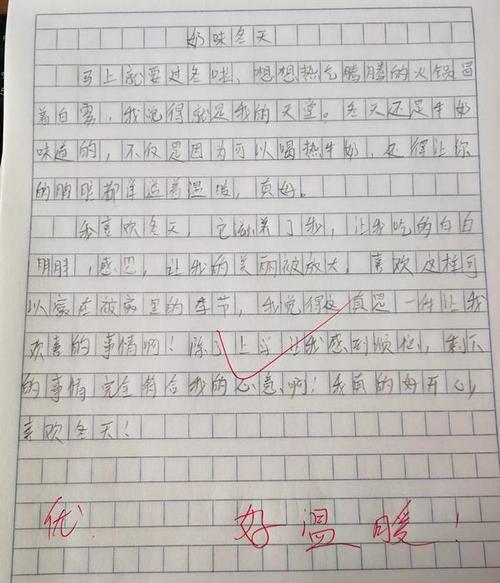 奶味冬天
马上就要过冬啦，想想热气腾腾的火锅冒
着白雾，我觉得就是我的天堂。冬天还是牛奶
味道的，不仅是因为可以喝热牛奶，还得让你
的眼都洋溢着温暖，真好。
我喜欢冬天，它滋养了我，让我吃的白白
胖胖，感恩，让我的美丽被放大，喜欢这种可
以窝在被窝里的季节，我觉得这真是一件让我
欢喜的事情啊！除了上学让我感到烦恼，剩下
的事情完全符合我的心意啊！我真的好开心，
喜欢冬天！
优 好温暖！